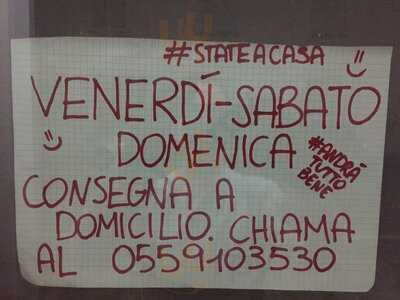 #STATEACASA
VENERDÍ-SABATO
DOMENICA
#ANDRÀ
TUTTO
BENE
CONSEGNA A
DOMICILIO. CHIAMA
AL 0559103530